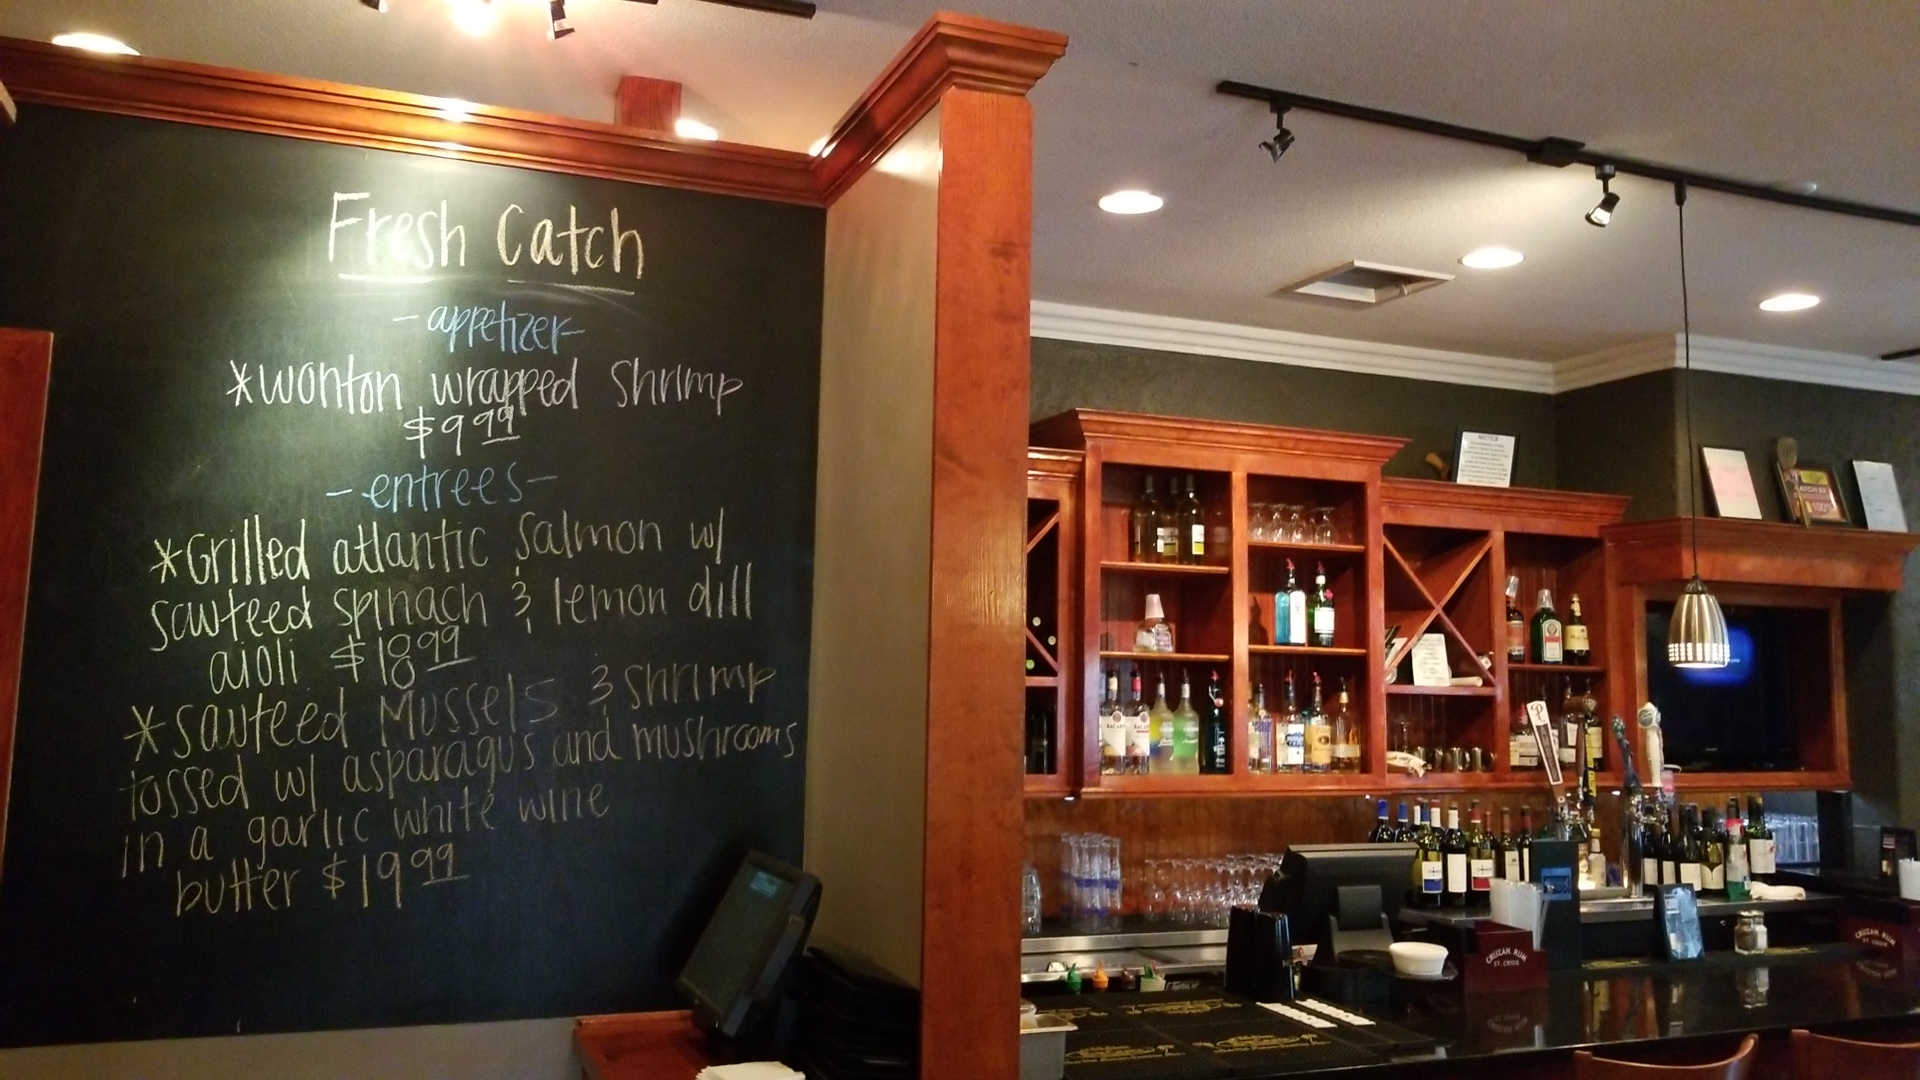 Fresh Catch
-appetizer-
*wonton wrapped shrimp
$9.99
-entrees-
*Grilled atlantic salmon w/
sauteed spinach & lemon dill
aioli $18.99
*sauteed Mussels & shrimp
tossed w/ asparagus and mushrooms
in a garlic white wine
butter $19.99
NOTICE
CRUZAN RUM
ST. CROIX
CRUZAN RUM
ST. CROIX